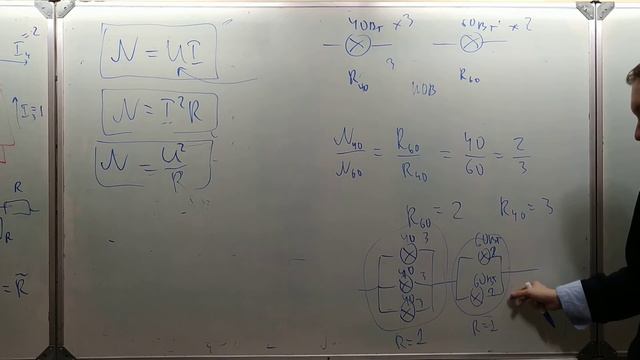 I₄=2
I₃=1
R
R
= R̃
N = UI
N = I²R
N = U²/R
40Вт ×3
60Вт ×2
3
R₄₀
R₆₀
N₄₀/N₆₀ = R₆₀/R₄₀ = 40/60 = 2/3
R₆₀ = 2 R₄₀ = 3
40 3
40 3
40 3
R=1
60Вт
2
60Вт
2
R=1